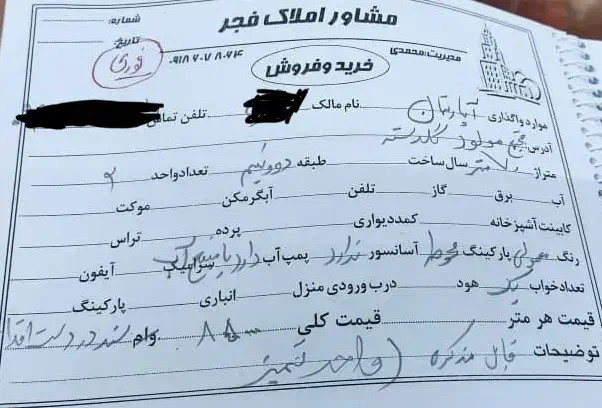 مشاور املاک فجر
شماره:
تاریخ:
مدیریت: محمدی
فوری
خرید و فروش
موارد واگذاری آپارتمان نام مالک تلفن تماس
آدرس: مجتمع مولود گلدسته
متراژ متر سال ساخت طبقه دوونیم تعداد واحد
آب برق گاز تلفن آبگرمکن موکت
کابینت آشپزخانه کمددیواری پرده تراس
رنگ معمولی پارکینگ محوطه آسانسور ندارد پمپ آب دارد با منبع آب سرامیک آیفون
تعداد خواب یک هود درب ورودی منزل انباری پارکینگ
قیمت هر متر قیمت کلی وام سند در دست اقدام
توضیحات قابل مذکره (واحد تمیز